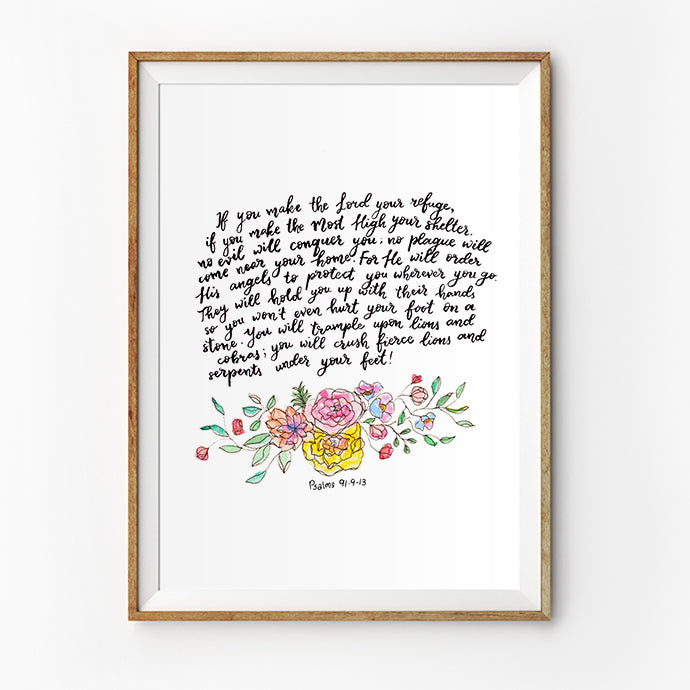 If you make the Lord your refuge,
if you make the Most High your shelter.
no evil will conquer you; no plague will
come near your home. For He will order
His angels to protect you wherever you go.
They will hold you up with their hands
so you won't even hurt your foot on a
stone. You will trample upon lions and
cobras; you will crush fierce lions and
serpents under your feet!
Psalms 91-9-13